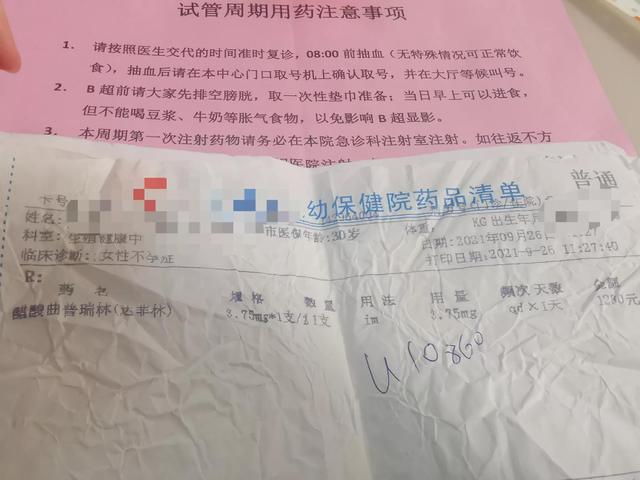 试管周期用药注意事项
1、 请按照医生交代的时间准时复诊，08:00 前抽血（无特殊情况可正常饮
食），抽血后请在本中心门口取号机上确认取号，并在大厅等候叫号。
2、 B 超前请大家先排空膀胱，取一次性垫巾准备；当日早上可以进食，
但不能喝豆浆、牛奶等胀气食物，以免影响 B 超显影。
3、 本周期第一次注射药物请务必在本院急诊科注射室注射。如往返不方
幼保健院药品清单
普通
卡号
姓名:
市医保 年龄:30岁 体重: KG 出生年月
科室:生殖健康中 日期:2021年09月26
临床诊断:女性不孕症 打印日期:2021-9-26 11:27:40
R:
药 名 规格 数量 用法 用量 频次 天数 金额
醋酸曲普瑞林(达菲林) 3.75mg*1支/1 1支 im 3.75mg qd×1天 1230元